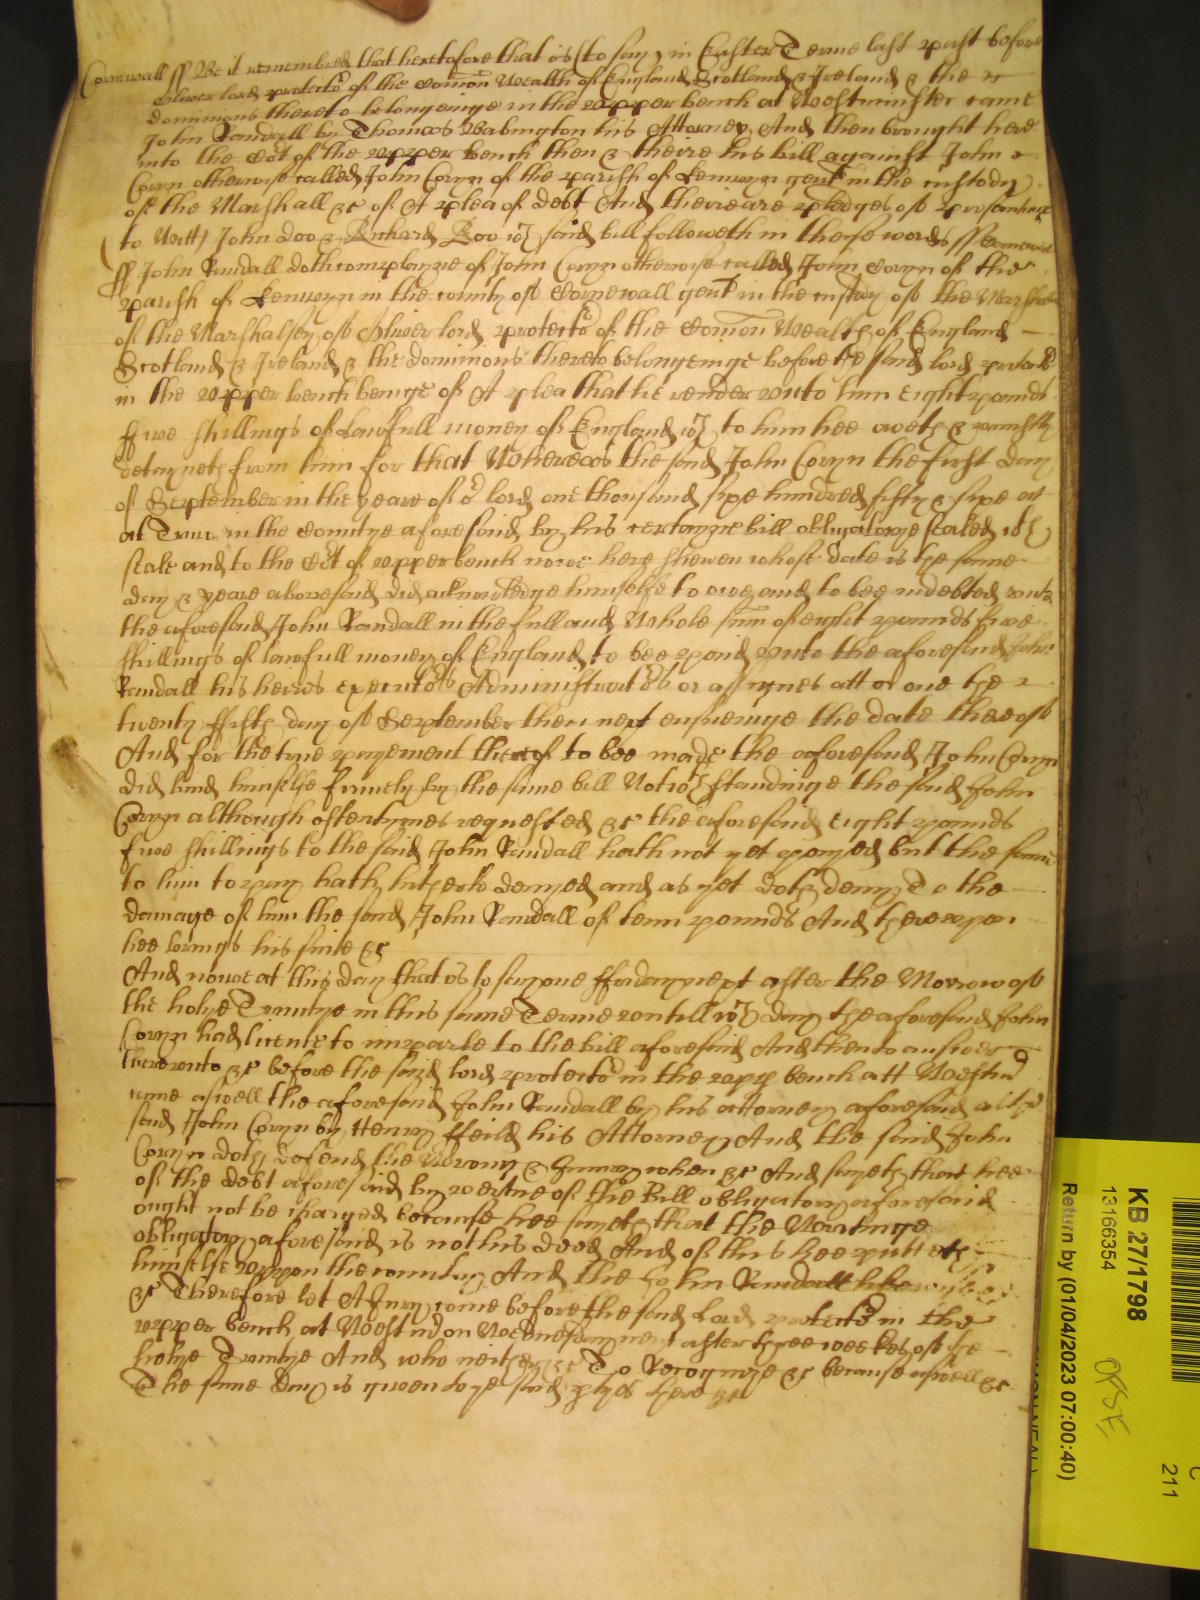 Cornewall ss Be it remembred that heretofore that is to say in Easter Terme last past before
Oliver lord protector of the Comon Wealth of England Scotland & Ireland & the
dominions thereto belongeinge in the upper bench at Westminster came
John Randall by Thomas Babington his Attorney And then brought here
into the Cort of the upper bench then & theire his bill against John
Coryn otherwise called John Coryn of the parish of Kenwyn gent in the custody
of the Marshall &c of A plea of debt And there are pledges of prosecutinge
to witt John Doo & Richard Roo wch said bill followeth in these words ss Cornewall
ss John Randall doth complayne of John Coryn otherwise called John Coryn of the
parish of Kenwyn in the county of Cornewall gent in the custody of the Marshall
of the Marshalsey of Oliver lord protector of the Comon Wealth of England
Scotland & Ireland & the dominions thereto belongeinge before the said lord protector
in the upper bench beinge of A plea that he render unto him eight pounds
ffive shillings of Lawfull money of England wch to him hee oweth & uniustly
detayneth from him for that Whereas the said John Coryn the first day
of September in the yeare of or lord one thousand sixe hundred fifty & sixe at
at Truro in the Countye aforesaid by his certayne bill obligatorye sealed wth
seale and to the Cort of upper bench nowe here shewen whose date is the same
day & yeare abovesaid did acknowledge himselfe to owe and to bee indebted unto
the aforesaid John Randall in the full and Whole sum of eight pounds five
shillings of lawfull money of England to bee paid unto the aforesaid John
Randall his heires executors Administrators or assignes att or one the
twenty ffifth day of September then next ensueinge the date thereof
And for the true payement thereof to bee made the aforesaid John Coryn
did bind himselfe firmely by the same bill Notwthstandinge the said John
Coryn although oftentymes requested &c the aforesaid eight pounds
five shillings to the said John Randall hath not yet payed but the same
to him to pay hath hitherto denyed and as yet doth deny To the
damage of him the said John Randall of tenn pounds And thereupon
hee brings his suite &c
And nowe at this day that is to say one ffriday next after the Morrow of
the holye Trinitye in this same Terme untill wch day the aforesaid John
Coryn had licence to imparle to the bill aforesaid And then to answer
thereunto &c before the said lord protector in the upp bench att Westmr
came aswell the aforesaid John Randall by his attorney aforesaid as the
said John Coryn by Henry ffeild his Attorney And the said John
Coryn doth defend the Wrong & Iniury when &c And sayeth that hee
of the debt aforesaid by vertue of the Bill obligatory aforesaid
ought not be charged because hee sayeth that the Writinge
obligatory aforesaid is not his deed And of this hee putteth
himselfe uppon the country And the John Randall likewise
&c Therefore let A Jury come before the said Lord protector in the
upper bench at Westmr on Wednesday next after three weekes of the
holye Trinitye And who neither &c To Recognize &c because aswell &c
The same day is given to ye said ptyes there &c
KB 27/1798
13166354
Return by (01/04/2023 07:00:40)
C
211